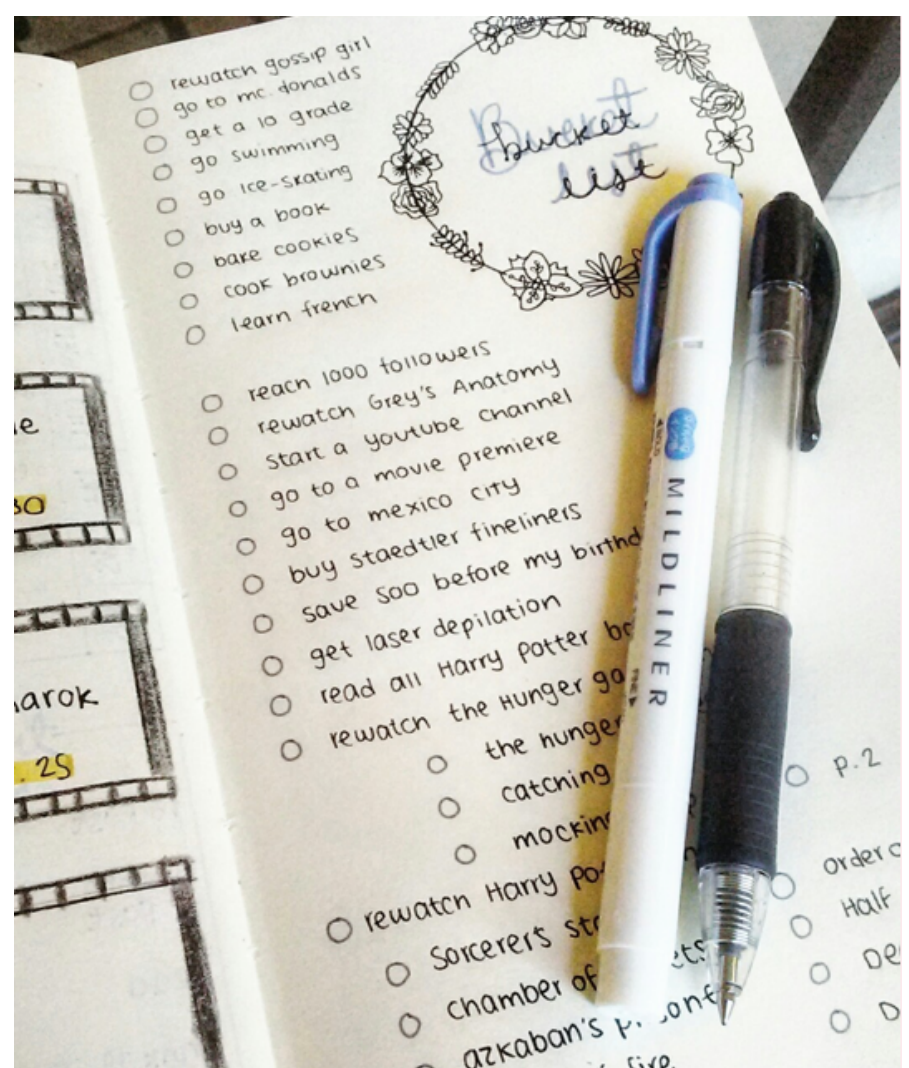 e
30
arok
.25
bucket
list
rewatch gossip girl
go to mc. donalds
get a 10 grade
go swimming
go ice-skating
buy a book
bake cookies
cook brownies
learn french
reach 1000 followers
rewatch Grey's Anatomy
start a youtube channel
go to a movie premiere
go to mexico city
buy staedtler fineliners
save 500 before my birthd
get laser depilation
read all Harry Potter bo
rewatch the Hunger ga
the hunger
catching
mocking
p.2
rewatch Harry Po
Sorcerer's sto
chamber of ets
azkaban's p
fire
order o
Half
De
D
MILDLINER